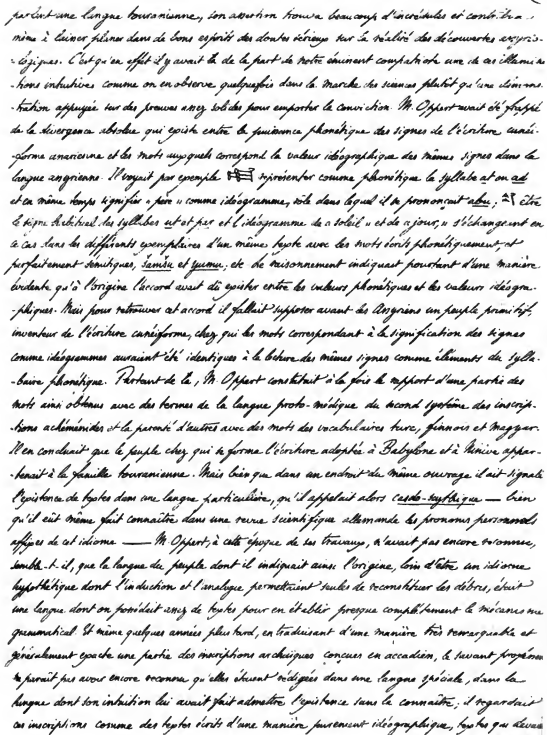 parlant une langue touranienne, son assertion trouva beaucoup d'incrédules et contribua
même à laisser planer dans de bons esprits des doutes sérieux sur la réalité des découvertes assyrio-
-logiques. C'est qu'en effet il y avait là de la part de notre éminent compatriote une de ces illumina
-tions intuitives comme on en observe quelquefois dans la marche des sciences plutôt qu'une démons-
-tration appuyée sur des preuves assez solides pour emporter la conviction. M. Oppert avait été frappé
de la divergence absolue qui existe entre la puissance phonétique des signes de l'écriture cunéi-
-forme anarienne et les mots auxquels correspond la valeur idéographique des mêmes signes dans la
langue assyrienne. Il voyait par exemple représenter comme phonétique la syllabe at ou ad
et en même temps signifier « père » comme idéogramme, rôle dans lequel il se prononçait abu; être
le signe habituel des syllabes ut et par et l'idéogramme de « soleil » et de « jour, » s'échangeant en
ce cas dans les différents exemplaires d'un même texte avec des mots écrits phonétiquement, et
parfaitement sémitiques, samsu et yumu; etc. Ce raisonnement indiquait pourtant d'une manière
évidente qu'à l'origine l'accord avait dû exister entre les valeurs phonétiques et les valeurs idéogra-
-phiques. Mais pour retrouver cet accord il fallait supposer avant les Assyriens un peuple primitif,
inventeur de l'écriture cunéiforme, chez qui les mots correspondant à la signification des signes
comme idéogrammes auraient été identiques à la lecture des mêmes signes comme éléments du sylla-
-baire phonétique. Partant de là, M. Oppert constatait à la fois le rapport d'une partie des
mots ainsi obtenus avec des termes de la langue proto-médique du second système des inscrip-
-tions achéménides et la parenté d'autres avec des mots des vocabulaires turc, finnois et magyar.
Il en concluait que le peuple chez qui se forma l'écriture adoptée à Babylone et à Ninive appar-
-tenait à la famille touranienne. Mais bien que dans un endroit du même ouvrage il ait signalé
l'existence de textes dans une langue particulière, qu'il appelait alors casdo-scythique — bien
qu'il eût même fait connaître dans une revue scientifique allemande les pronoms personnels
affixes de cet idiome — M. Oppert, à cette époque de ses travaux, n'avait pas encore reconnu,
semble-t-il, que la langue du peuple dont il indiquait ainsi l'origine, loin d'être un idiome
hypothétique dont l'induction et l'analogie permettaient seules de reconstituer les débris, était
une langue dont on possédait assez de textes pour en établir presque complètement le mécanisme
grammatical. Et même quelques années plus tard, en traduisant d'une manière très remarquable et
généralement exacte une partie des inscriptions archaïques conçues en accadien, le savant professeur
ne paraît pas avoir encore reconnu qu'elles étaient rédigées dans une langue spéciale, dans la
langue dont son intuition lui avait fait admettre l'existence sans la connaître; il regardait
ces inscriptions comme des textes écrits d'une manière purement idéographique, textes qui devai